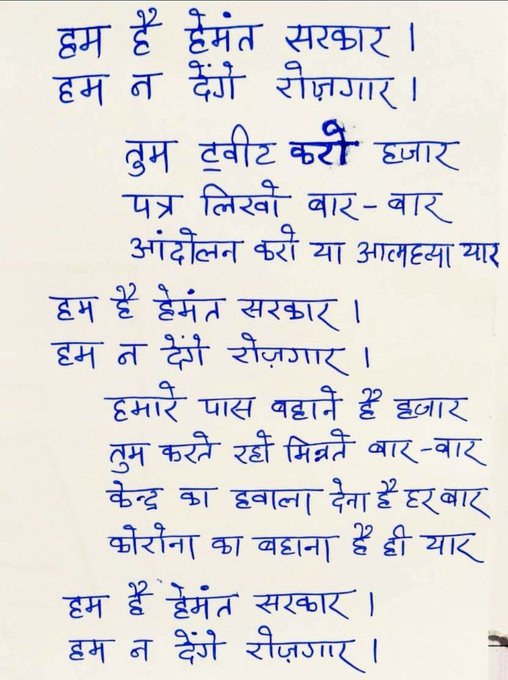 हम है हेमंत सरकार ।
हम न देंगे रोज़गार ।
तुम ट्वीट करो हजार
पत्र लिखो बार-बार
आंदोलन करो या आत्महत्या यार
हम है हेमंत सरकार ।
हम न देंगे रोज़गार ।
हमारे पास बहाने है हजार
तुम करते रहो मिन्नते बार-बार
केन्द्र का हवाला देना है हर बार
कोरोना का बहाना है ही यार
हम है हेमंत सरकार ।
हम न देंगे रोज़गार ।